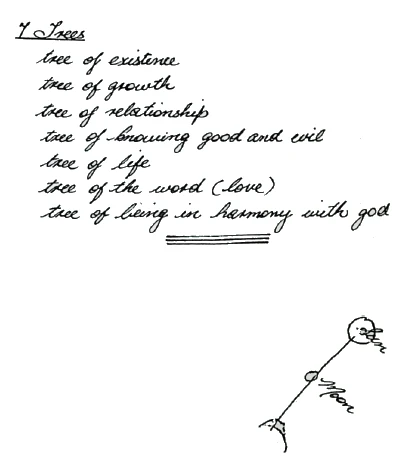 7 Trees
tree of existence
tree of growth
tree of relationship
tree of knowing good and evil
tree of life
tree of the word (love)
tree of being in harmony with god
Sun
Moon